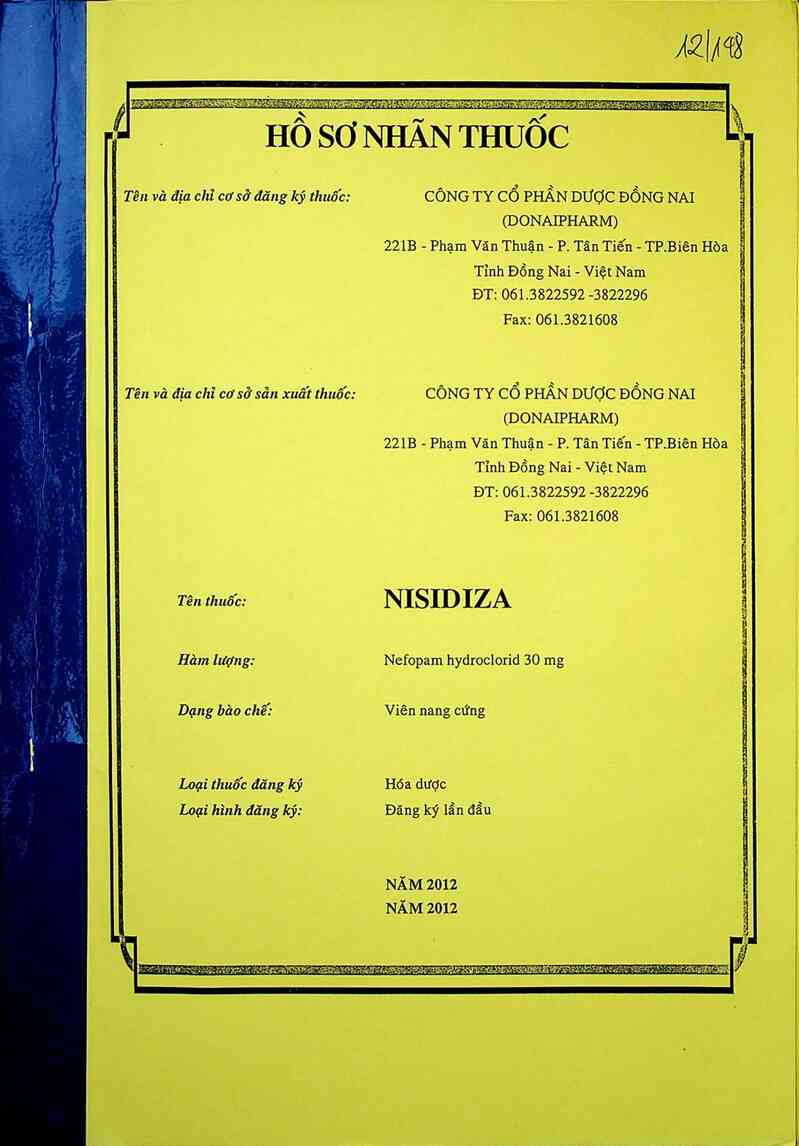 12/198
HỒ SƠ NHÃN THUỐC
Tên và địa chỉ cơ sở đăng ký thuốc: CÔNG TY CỔ PHẦN DƯỢC ĐỒNG NAI
(DONAIPHARM)
221B - Phạm Văn Thuận - P. Tân Tiến - TP.Biên Hòa
Tỉnh Đồng Nai - Việt Nam
ĐT: 061.3822592 -3822296
Fax: 061.3821608
Tên và địa chỉ cơ sở sản xuất thuốc: CÔNG TY CỔ PHẦN DƯỢC ĐỒNG NAI
(DONAIPHARM)
221B - Phạm Văn Thuận - P. Tân Tiến - TP.Biên Hòa
Tỉnh Đồng Nai - Việt Nam
ĐT: 061.3822592 -3822296
Fax: 061.3821608
Tên thuốc: NISIDIZA
Hàm lượng: Nefopam hydroclorid 30 mg
Dạng bào chế: Viên nang cứng
Loại thuốc đăng ký Hóa dược
Loại hình đăng ký: Đăng ký lần đầu
NĂM 2012
NĂM 2012